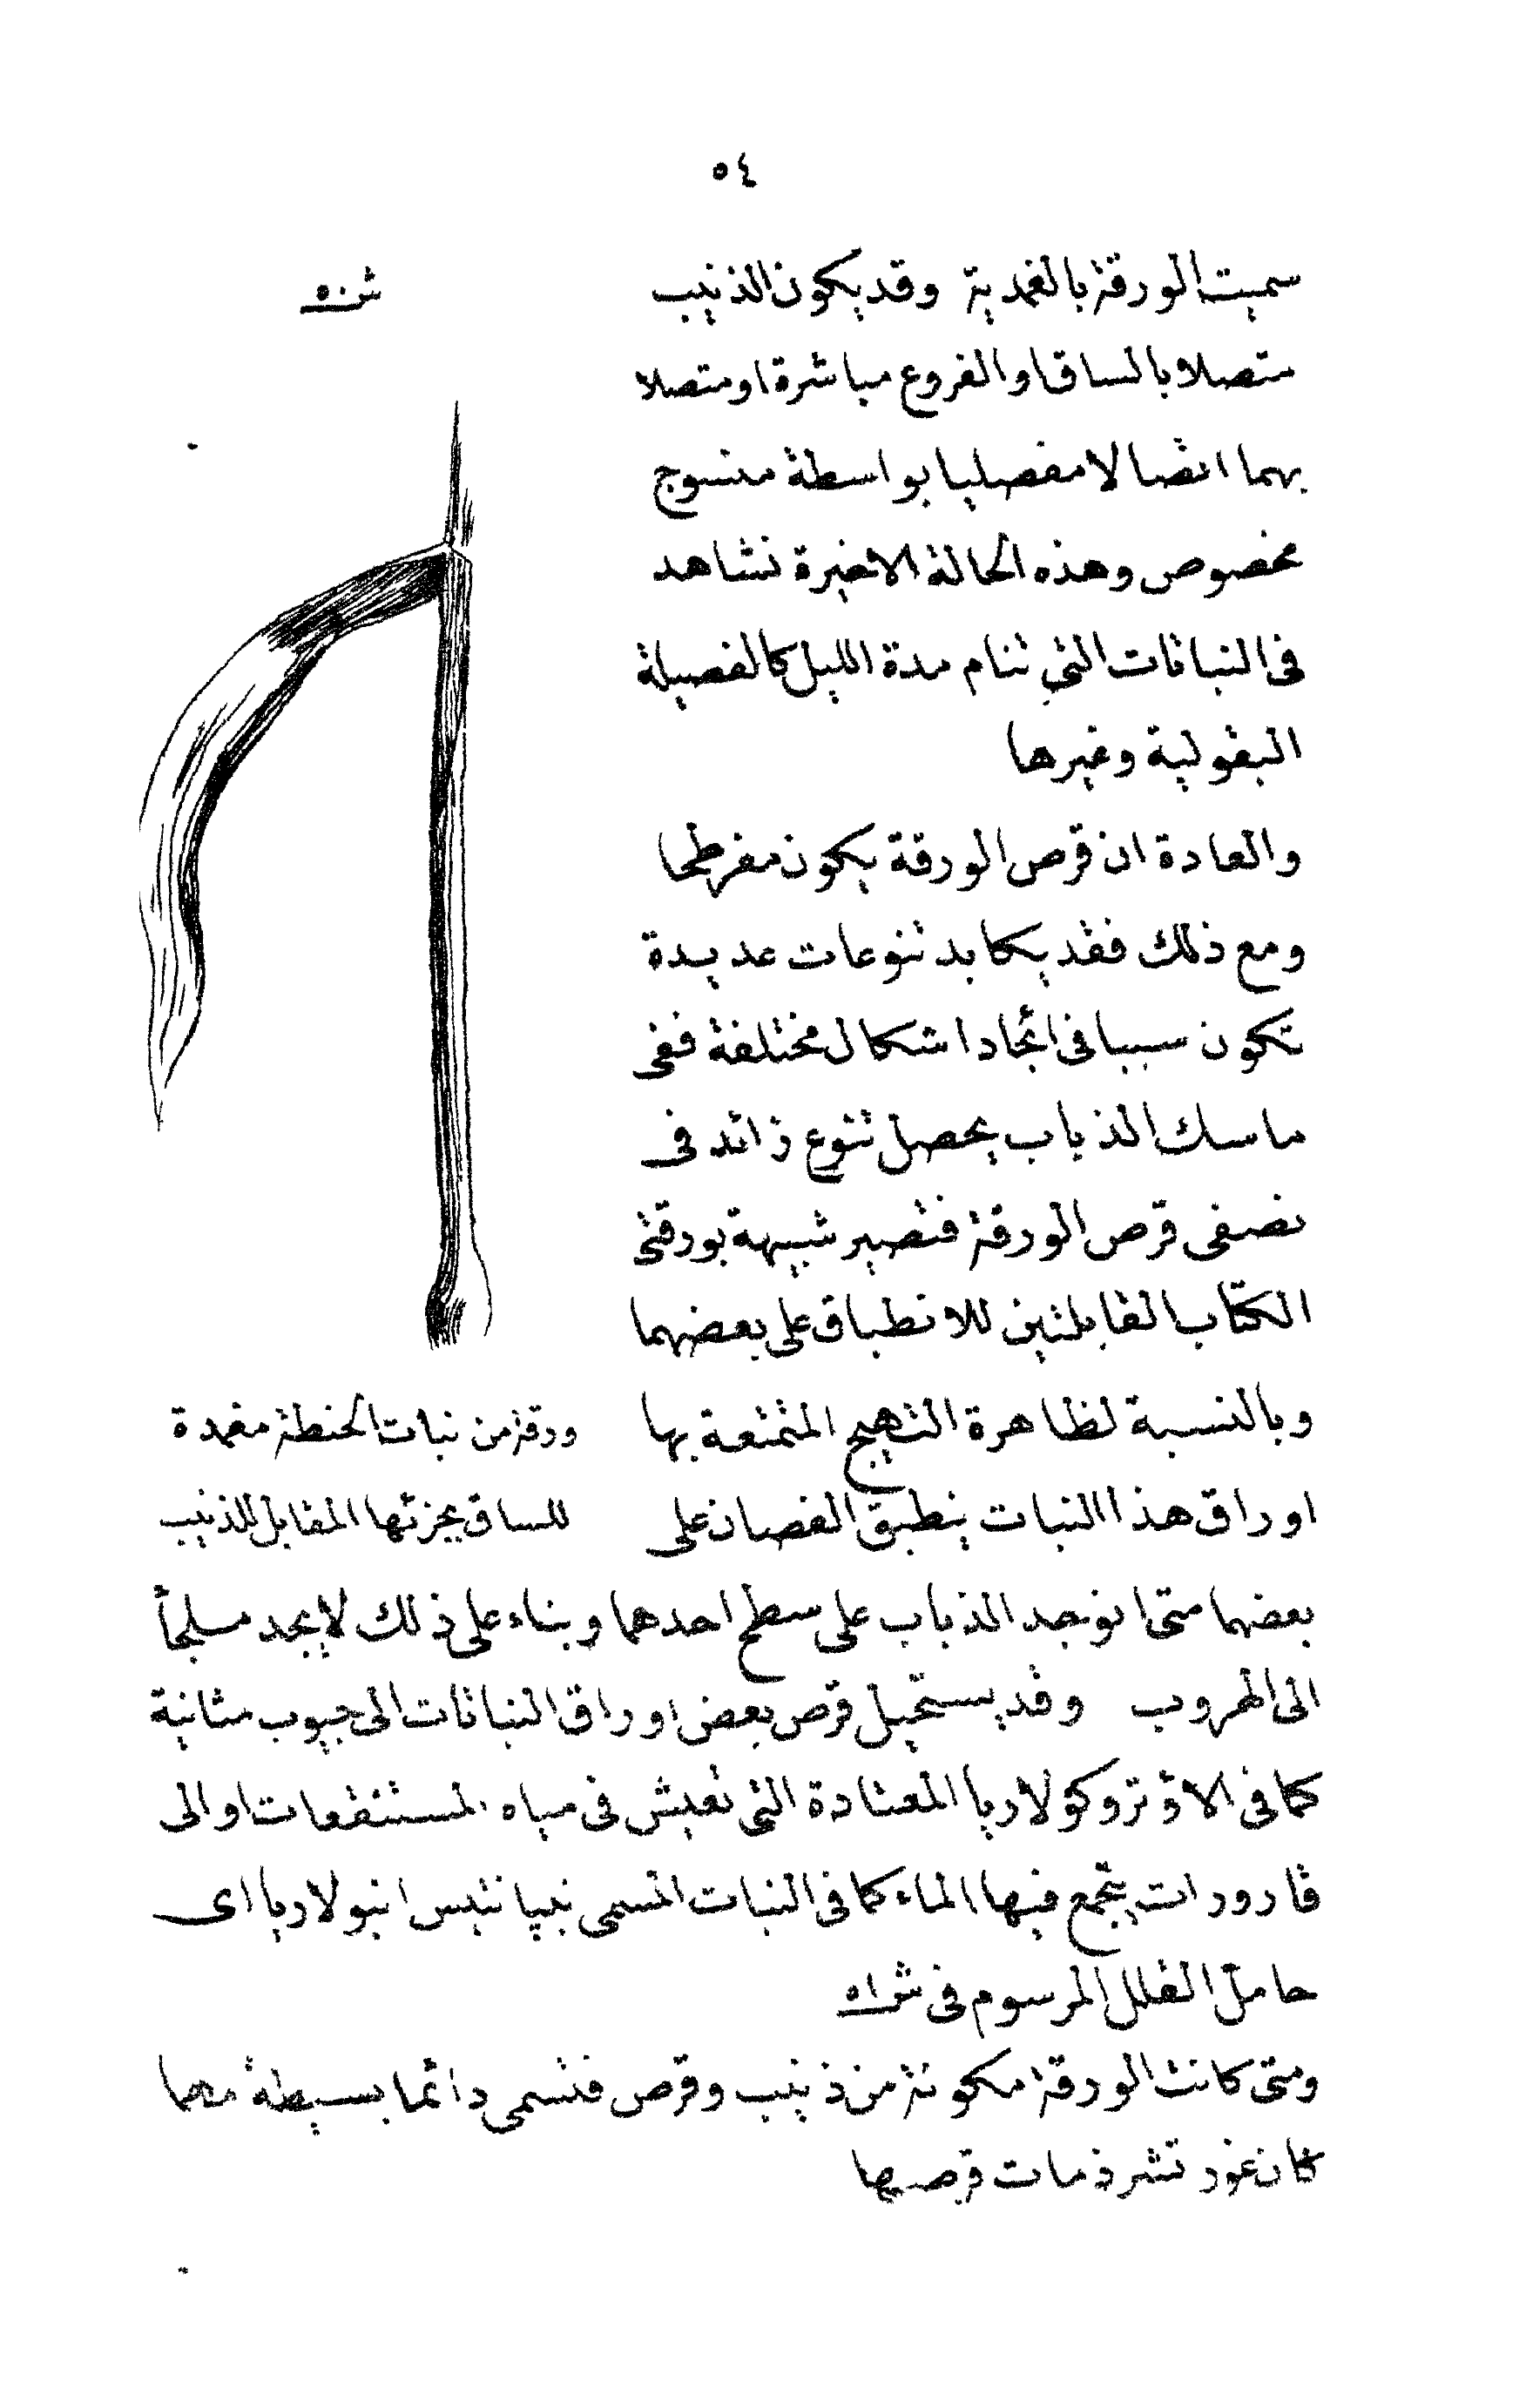 ٥٤
سميت الورقة بالغمدية وقد يكون الذنيب
متصلا بالساق او الفروع مباشرة او متصلا
بهما اتصالا مفصليا بواسطة منسوج
مخصوص وهذه الحالة الاخيرة تشاهد
فى النباتات التى تنام مدة الليل كالفصيلة
البقولية وغيرها
والعادة ان قرص الورقة يكون مفرطحا
ومع ذلك فقد يكابد تنوعات عديدة
تكون سببا فى اتجاد اشكال مختلفة ففى
ماسك الذباب يحصل تنوع زائد فى
نصفى قرص الورقة فتصير شبيهة بورقتى
الكتاب القابلتين للانطباق على بعضهما
وبالنسبة لظاهرة التهيج المتمتعة بها
اوراق هذا النبات ينطبق الفصان على
ش ٥٠
ورقة من نبات الحنطة مغمدة
للساق بجزئها المقابل للذنيب
بعضهما متى انوجد الذباب على سطح احدهما وبناء على ذلك لا يجد مسلجأ
الى الهروب وقد يستحيل قرص بعض اوراق النباتات الى جيوب مثانية
كما فى الاؤتروكولاريا المعتادة التى تعيش فى مياه المستنقعات او الى
قارورات يتجمع فيها الماء كما فى النبات المسمى نيپانتيس انپولاريا اى
حامل القلل المرسوم فى ش ٥١
ومتى كانت الورقة مكونة من ذنيب وقرص فتسمى دائما بسيطة مهما
كان غور تشرذمات قرصها